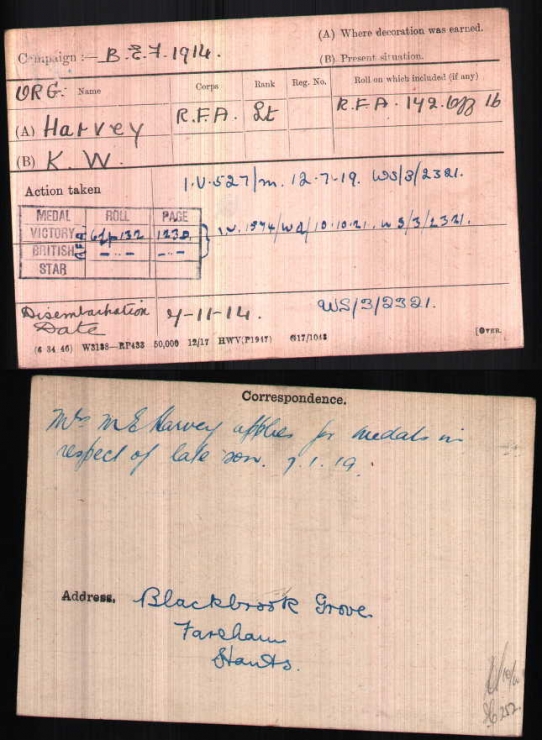 (A) Where decoration was earned.
Campaign :— B.E.F. 1914.
(B) Present situation.
ORG. Name Corps Rank Reg. No. Roll on which included (if any)
(A) Harvey R.F.A. Lt R.F.A. 142. Off 16
(B) K. W.
Action taken I.V. 527/m. 12.7.19. WS/3/2321.
MEDAL ROLL PAGE
VICTORY RFA Off 132 1230 I.V. 1974/WA/10.10.21. WS/3/2321.
BRITISH - - - -
STAR
Disembarkation 7-11-14. WS/3/2321.
Date
(6 34 46) W3188—RP433 50,000 12/17 HWV(P1947) G17/1043 [OVER.
Correspondence.
Mrs M E Harvey applies for medals in
respect of late son. 7.1.19.
Address. Blackbrook Grove
Fareham
Hants.